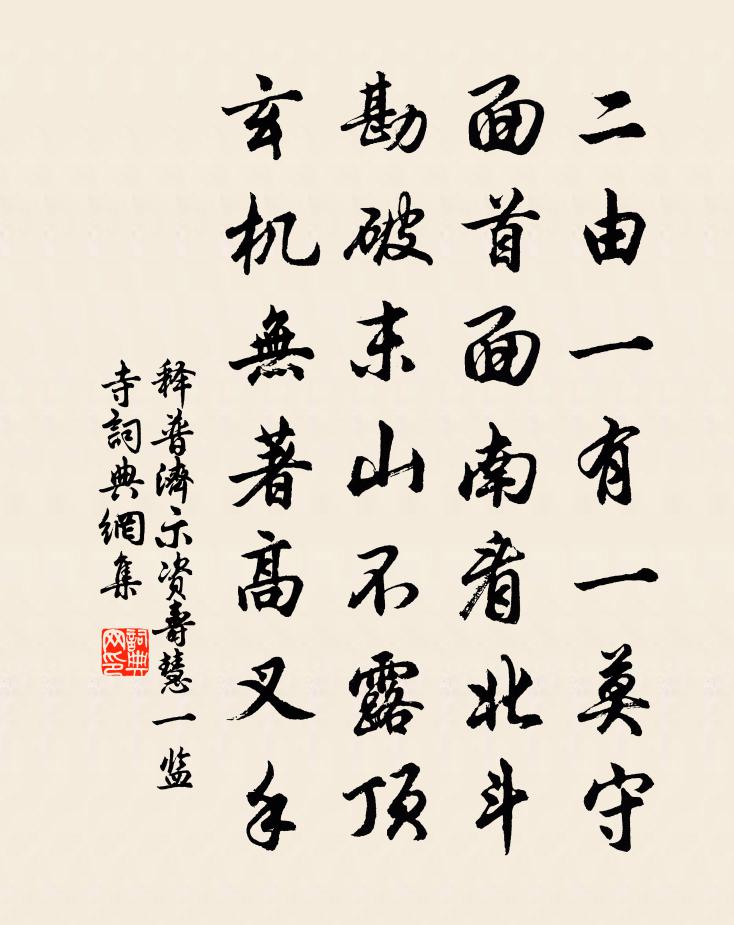 二由一有一莫守
面首面南看北斗
勘破末山不露顶
玄机無著高叉手
释普濟示资壽慧一监
寺詞典網集
詞典
网印